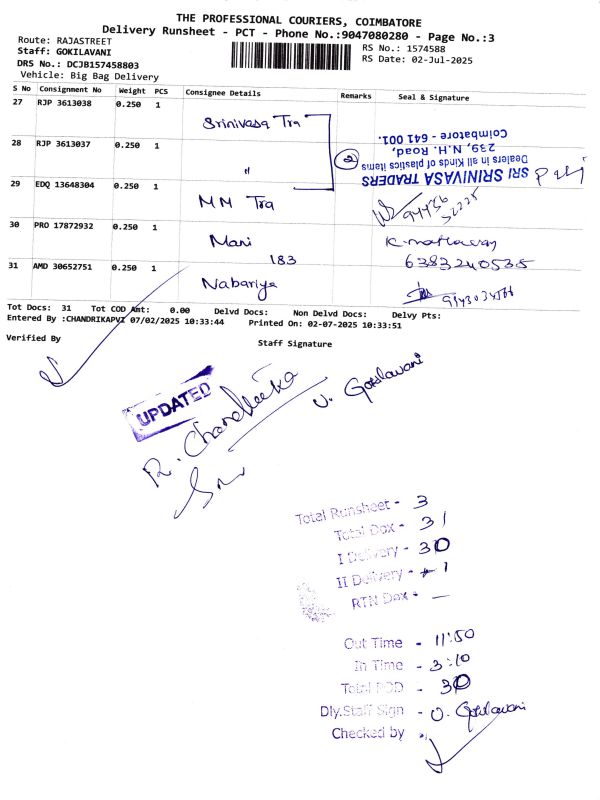 THE PROFESSIONAL COURIERS, COIMBATORE
Delivery Runsheet - PCT - Phone No.:9047080280 - Page No.:3
Route: RAJASTREET
RS No.: 1574588
Staff: GOKILAVANI
RS Date: 02-Jul-2025
DRS No.: DCJB157458803
Vehicle: Big Bag Delivery
S No Consignment No Weight PCS Consignee Details Remarks Seal & Signature
27 RJP 3613038 0.250 1
Srinivasa Tra
28 RJP 3613037 0.250 1
"
2
SRI SRINIVASA TRADERS
Dealers in all Kinds of plastics items
239, N.H. Road,
Coimbatore - 641 001.
29 EDQ 13648304 0.250 1
MM Tra
94436
52225
30 PRO 17872932 0.250 1
Mani
183
6383240535
31 AMD 30652751 0.250 1
Nabariya
Tot Docs: 31 Tot COD Amt: 0.00 Delvd Docs: Non Delvd Docs: Delvy Pts:
Entered By :CHANDRIKAPVI 07/02/2025 10:33:44 Printed On: 02-07-2025 10:33:51
Verified By
Staff Signature
UPDATED
R. Chandrika
U. Gokilavani
Total Runsheet - 3
Total Dox - 31
I Delivery - 30
II Delivery - 1
RTN Dox - —
Out Time - 11:50
In Time - 3:10
Total POD - 30
Dly.Staff Sign - U. Gokilavani
Checked by -